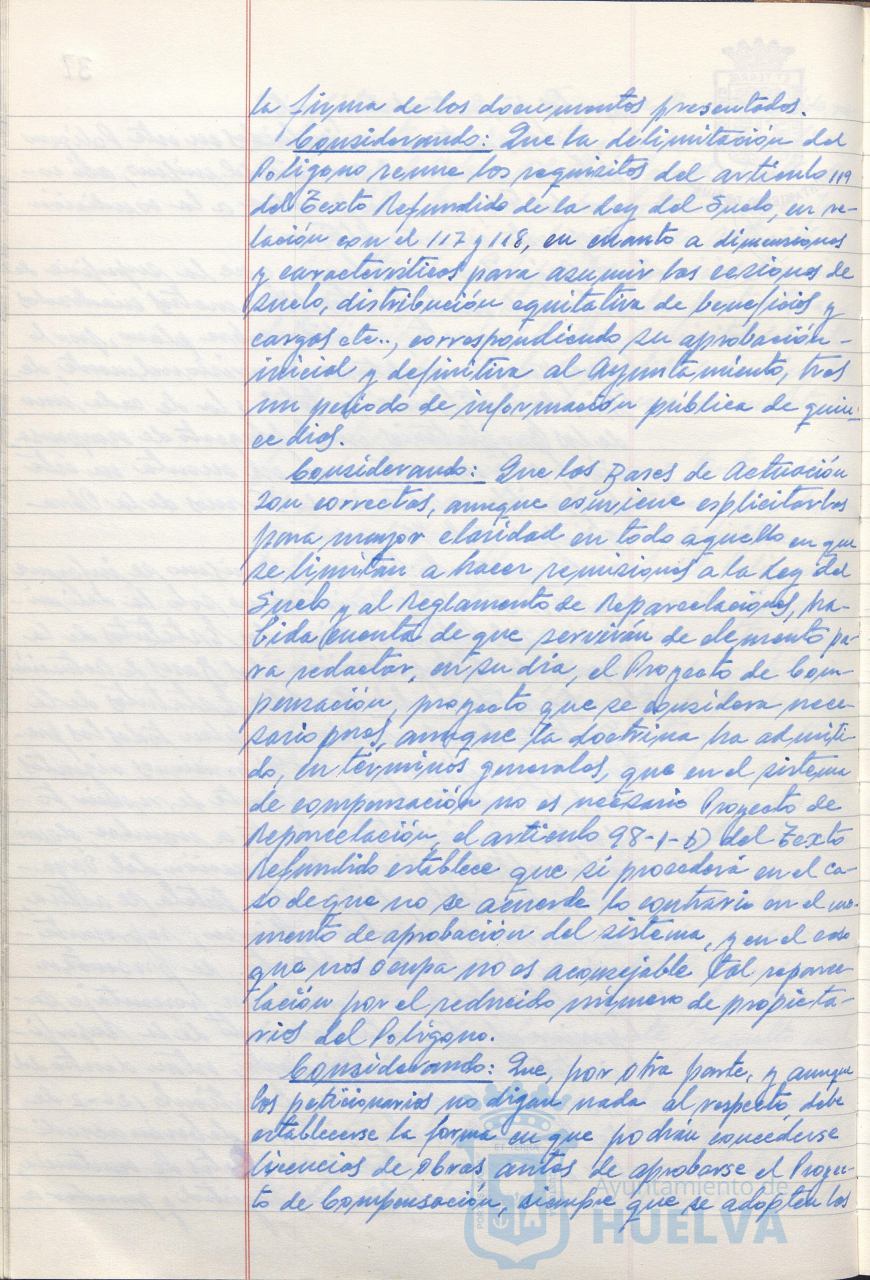 la firma de los documentos presentados.
Considerando: Que la delimitación del
Polígono reune los requisitos del artículo 119
del Texto Refundido de la Ley del Suelo, en re-
lación con el 117 y 118, en cuanto a dimensiones
y características para asumir las cesiones de
suelo, distribución equitativa de beneficios y
cargas etc.., correspondiendo su aprobación-
inicial y definitiva al Ayuntamiento, tras
un periodo de información pública de quin-
ce días.
Considerando: Que las Bases de Actuación
son correctas, aunque conviene explicitarlas
para mayor claridad en todo aquello en que
se limitan a hacer remisiones a la Ley del
Suelo y al Reglamento de Reparcelaciones, ha-
bida cuenta de que servirán de elemento pa-
ra redactar, en su día, el Proyecto de Com-
pensación, proyecto que se considera nece-
sario pues, aunque la doctrina ha admiti-
do, en términos generales, que en el sistema
de compensación no es necesario Proyecto de
Reparcelación, el artículo 98-1-b) del Texto
Refundido establece que si procederá en el ca-
so de que no se acuerde lo contrario en el mo-
mento de aprobación del sistema, y en el caso
que nos ocupa no es aconsejable tal reparce-
lación por el reducido número de propieta-
rios del Polígono.
Considerando: Que, por otra parte, y aunque
los peticionarios no digan nada al respecto, debe
establecerse la forma en que podrán concederse
licencias de obras antes de aprobarse el Proyec-
to de Compensación, siempre que se adopten las
Ayuntamiento de
HUELVA